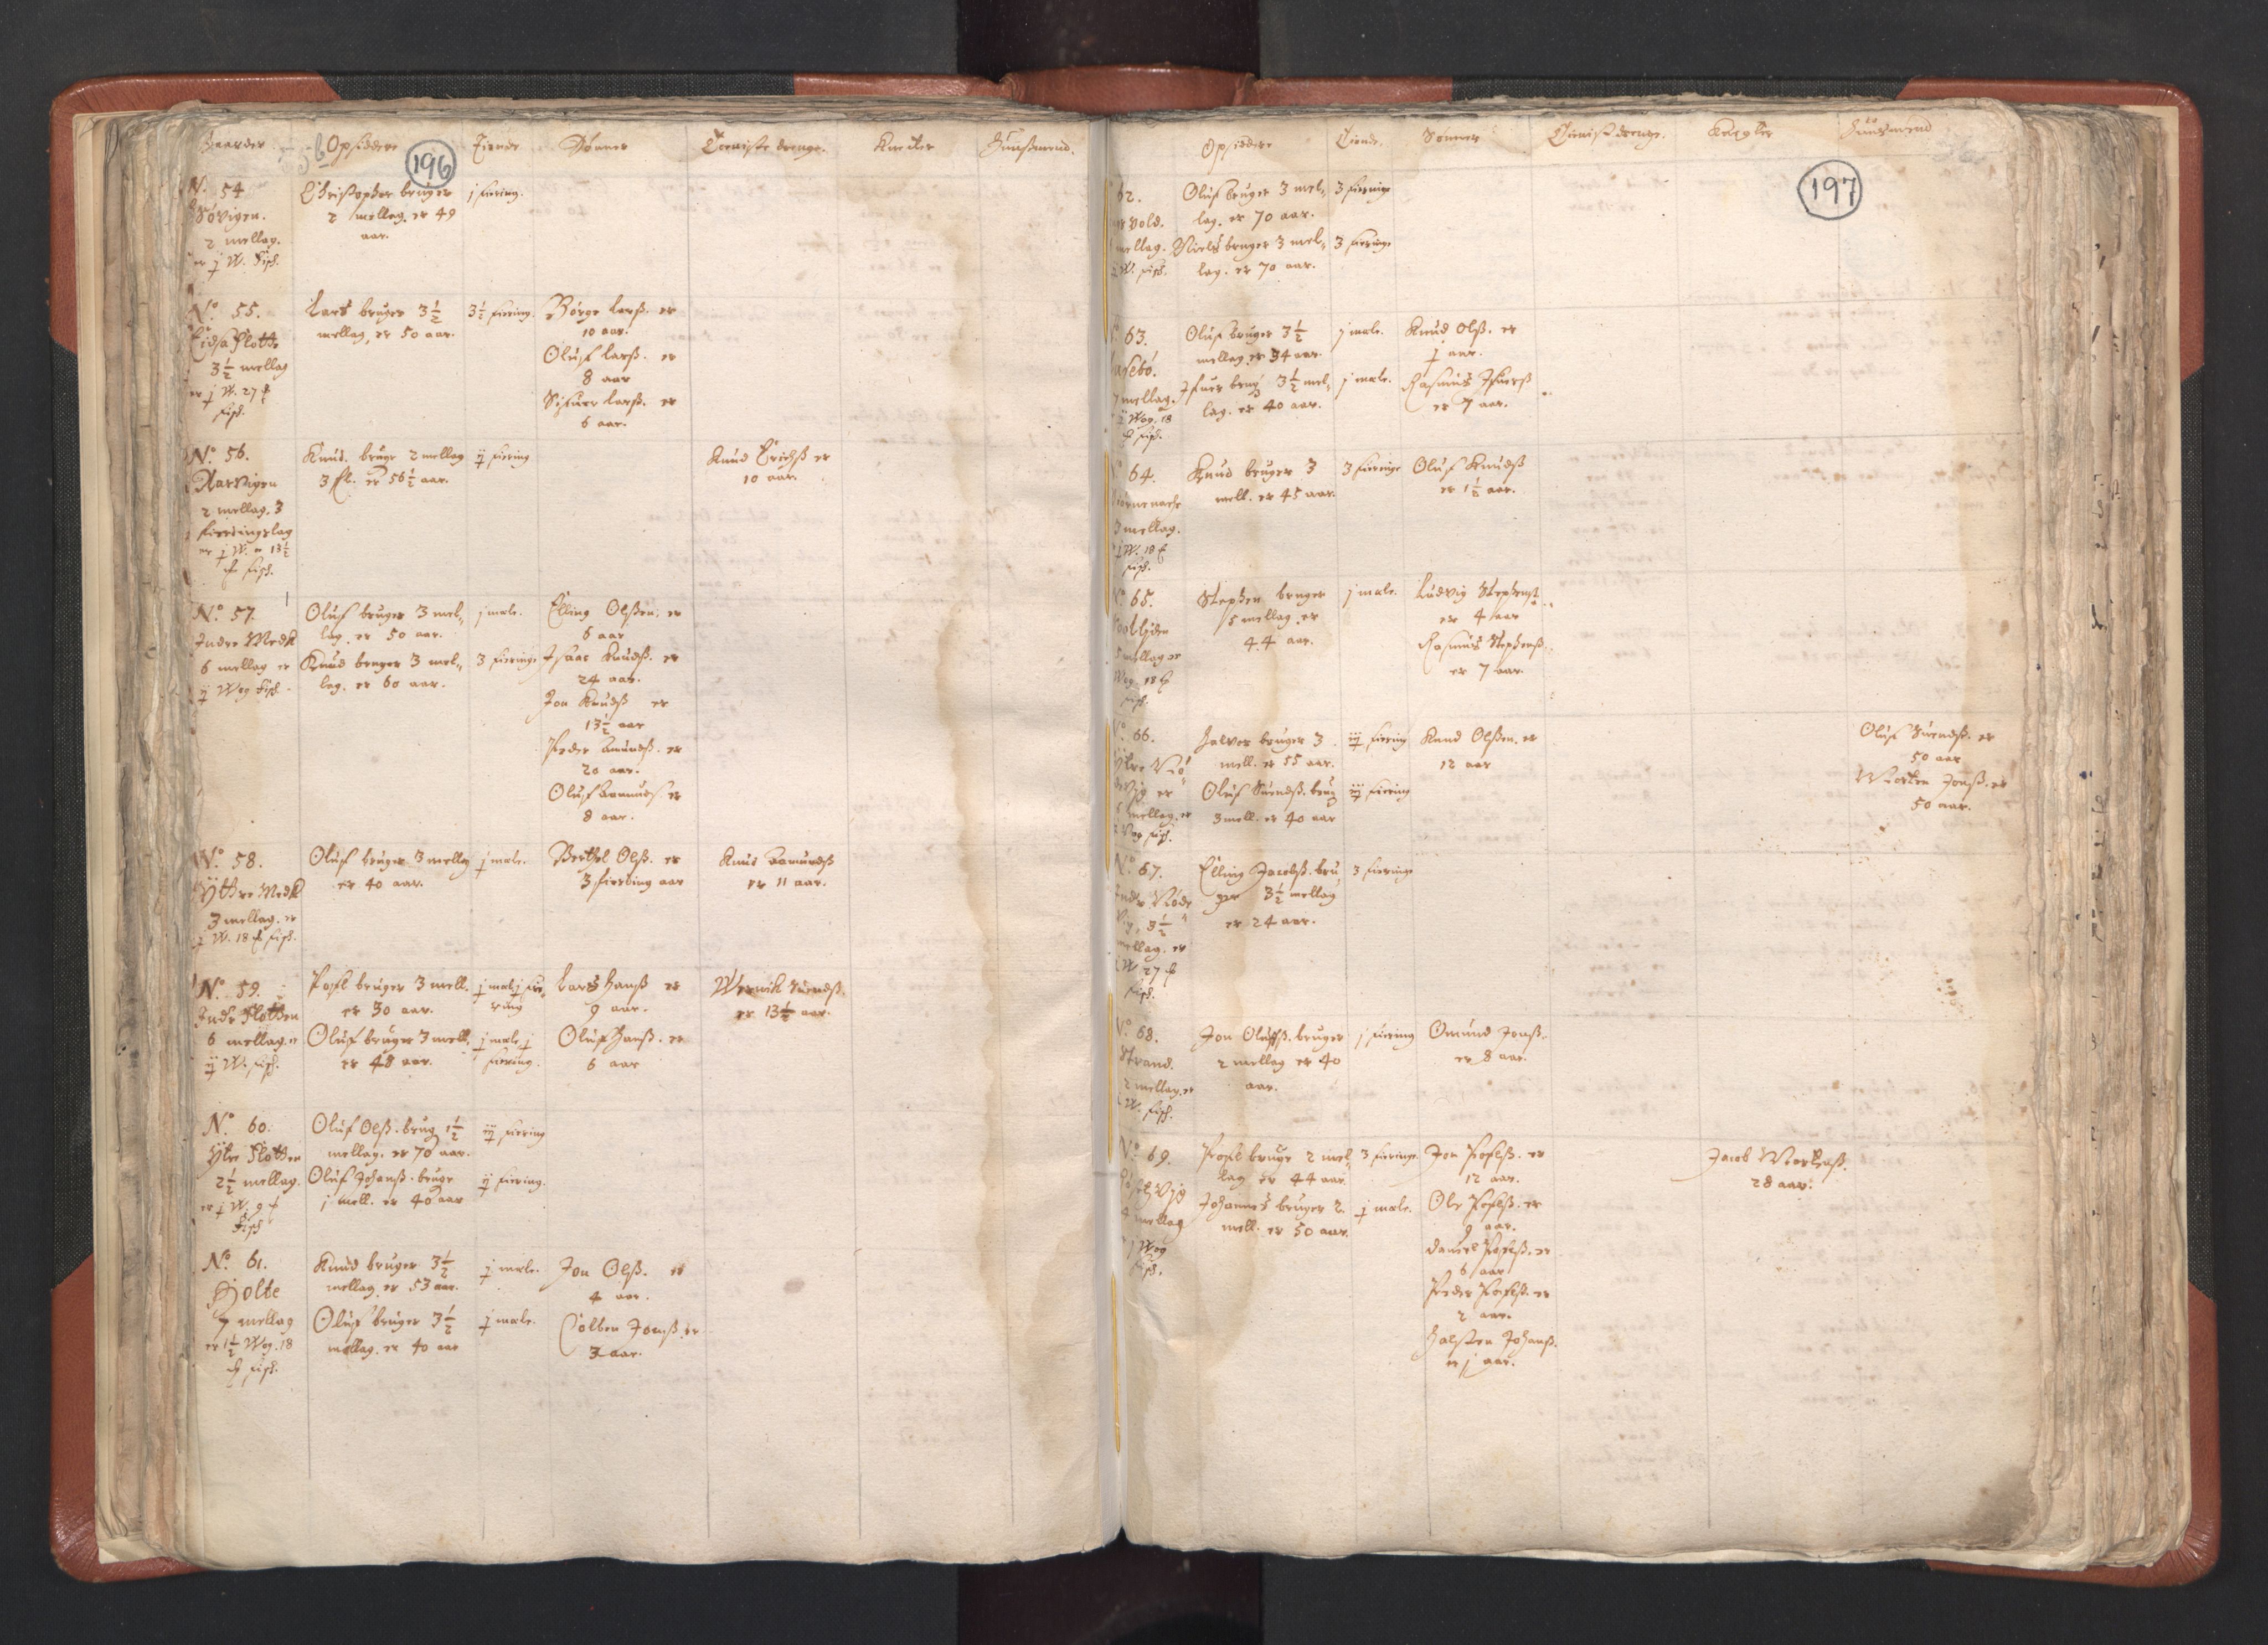 Gaarder. Opsiddere Tiende Sønner Tieniste drenge. Knecter Huussmend.
196
N. 54
Søvigen.
2 mellag.
er j W. Fisk.
Christopher bruger
2 mellag. er 49
aar.
j fiering.
No. 55.
3½ mellag
er j W. 27
fisk.
Lars bruger 3½
mellag, er 50 aar.
3½ fiering.
Børge Larss. er
10 aar.
Oluf Larss. er
8 aar
Sifuer Larss. er
6 aar.
No. 56.
Aarvigen
2 mellag. 3
fierdingslag
er j W. 13½
fisk.
Knud. bruger 2 mellag
3 fl. er 56½ aar.
ij fiering
Knud Erichss er
10 aar.
No. 57.
Indre Medk
6 mellag er
ij Wog Fisk.
Oluf bruger 3 mel-
lag. er 50 aar.
Knud bruger 3 mel-
lag. er 60 aar.
j male.
3 fieringe
Elling Olssen. er
6 aar
Isaac Knudss. er
24 aar.
Jon Knudss er
13½ aar
Peder Amundss. er
20 aar.
Oluf Aamunds. er
8 aar.
No. 58.
Ythre Medk
3 mellag. er
j W. 18 fisk.
Oluf bruger 3 mellag
er 40 aar.
j male.
Berthel Olss. er
3 fierding aar
Knud Aamundss
er 11 aar.
No. 59.
Indr Slotten
6 mellag. er
ij W. fisk.
Pofl bruger 3 mell.
er 30 aar.
Oluf bruger 3 mell.
er 48 aar.
j male j fie-
ring
j male, j
fiering.
Lars Hanss er
9 aar.
Oluf Hanss. er
6 aar
Wernik Suendss.
er 13½ aar.
No. 60.
Ytre Slotten
2½ mellag.
er j W. 9
Fisk
Oluf Olss. brug 1½
mellag. er 70 aar.
Oluf Johanss. bruger
j mell. er 40 aar
iij fiering
ij fiering.
No. 61.
Holte
7 mellag
er 1½ Wog. 18
fisk.
Knud bruger 3½
mellag. er 53 aar.
Oluf bruger 3½
mellag. er 40 aar
j male.
j male.
Jon Olss. er
4 aar.
Colben Jonss. er
3 aar.
Opsiddere Tiende. Sønner Tienist drenge. Knegter Huusmend
197
62.
vold.
mellag.
W. fisk.
Oluf bruger 3 mel-
lag. er 70 aar.
Niels bruger 3 mel-
lag. er 70 aar.
3 fieringe
3 fieringe
63.
7 mellag.
Wog. 18
fisk.
Oluf bruger 3½
mellag. er 34 aar.
Ifuer brug 3½ mel-
lag. er 40 aar.
j male.
j male.
Knud Olss. er
j aar.
Rasmus Ifuerss
er 7 aar.
64.
3 mellag.
j W. 18
fisk.
Knud bruger 3
mell. er 45 aar.
3 fieringe
Oluf Knudss
er 1½ aar.
No. 65.
5 mellag er
Wog. 18
fisk.
Stephen bruger
5 mellag. er
44 aar.
j male.
Ludvig Stephenss
er 4 aar
Rasmus Stephenss.
er 7 aar.
No. 66.
Ytre
vig er
mellag. er
Wog fisk.
Halver bruger 3
mell. er 55 aar.
Oluf Suendss. brug
3 mell. er 40 aar
iij fiering
iij fiering
Knud Olssen. er
12 aar
Oluf Suendss. er
50 aar
Morten Jonss. er
50 aar.
No. 67.
Indr Nøde
vig, 3½
mellag. er
W 27
fisk.
Elling Jacobss. bru-
ger 3½ mellag
er 24 aar.
3 fieringe
No. 68.
Strand.
2 mellag. er
W. fisk.
Jon Olufss. bruger
2 mellag er 40
aar.
j fiering
Omund Jonss.
er 8 aar.
No. 69.
4 mellag
j Wog
fisk.
Pofl bruger 2 mel-
lag er 44 aar.
Johannes bruger 2.
mell. er 50 aar.
3 fieringe.
j male.
Jon Poflss. er
12 aar.
Ole Poflss. er
9 aar.
Daniel Poflss. er
6 aar
Peder Poflss. er
2 aar.
Halsten Johanss.
er j aar.
Jacob Mortenss.
28 aar.